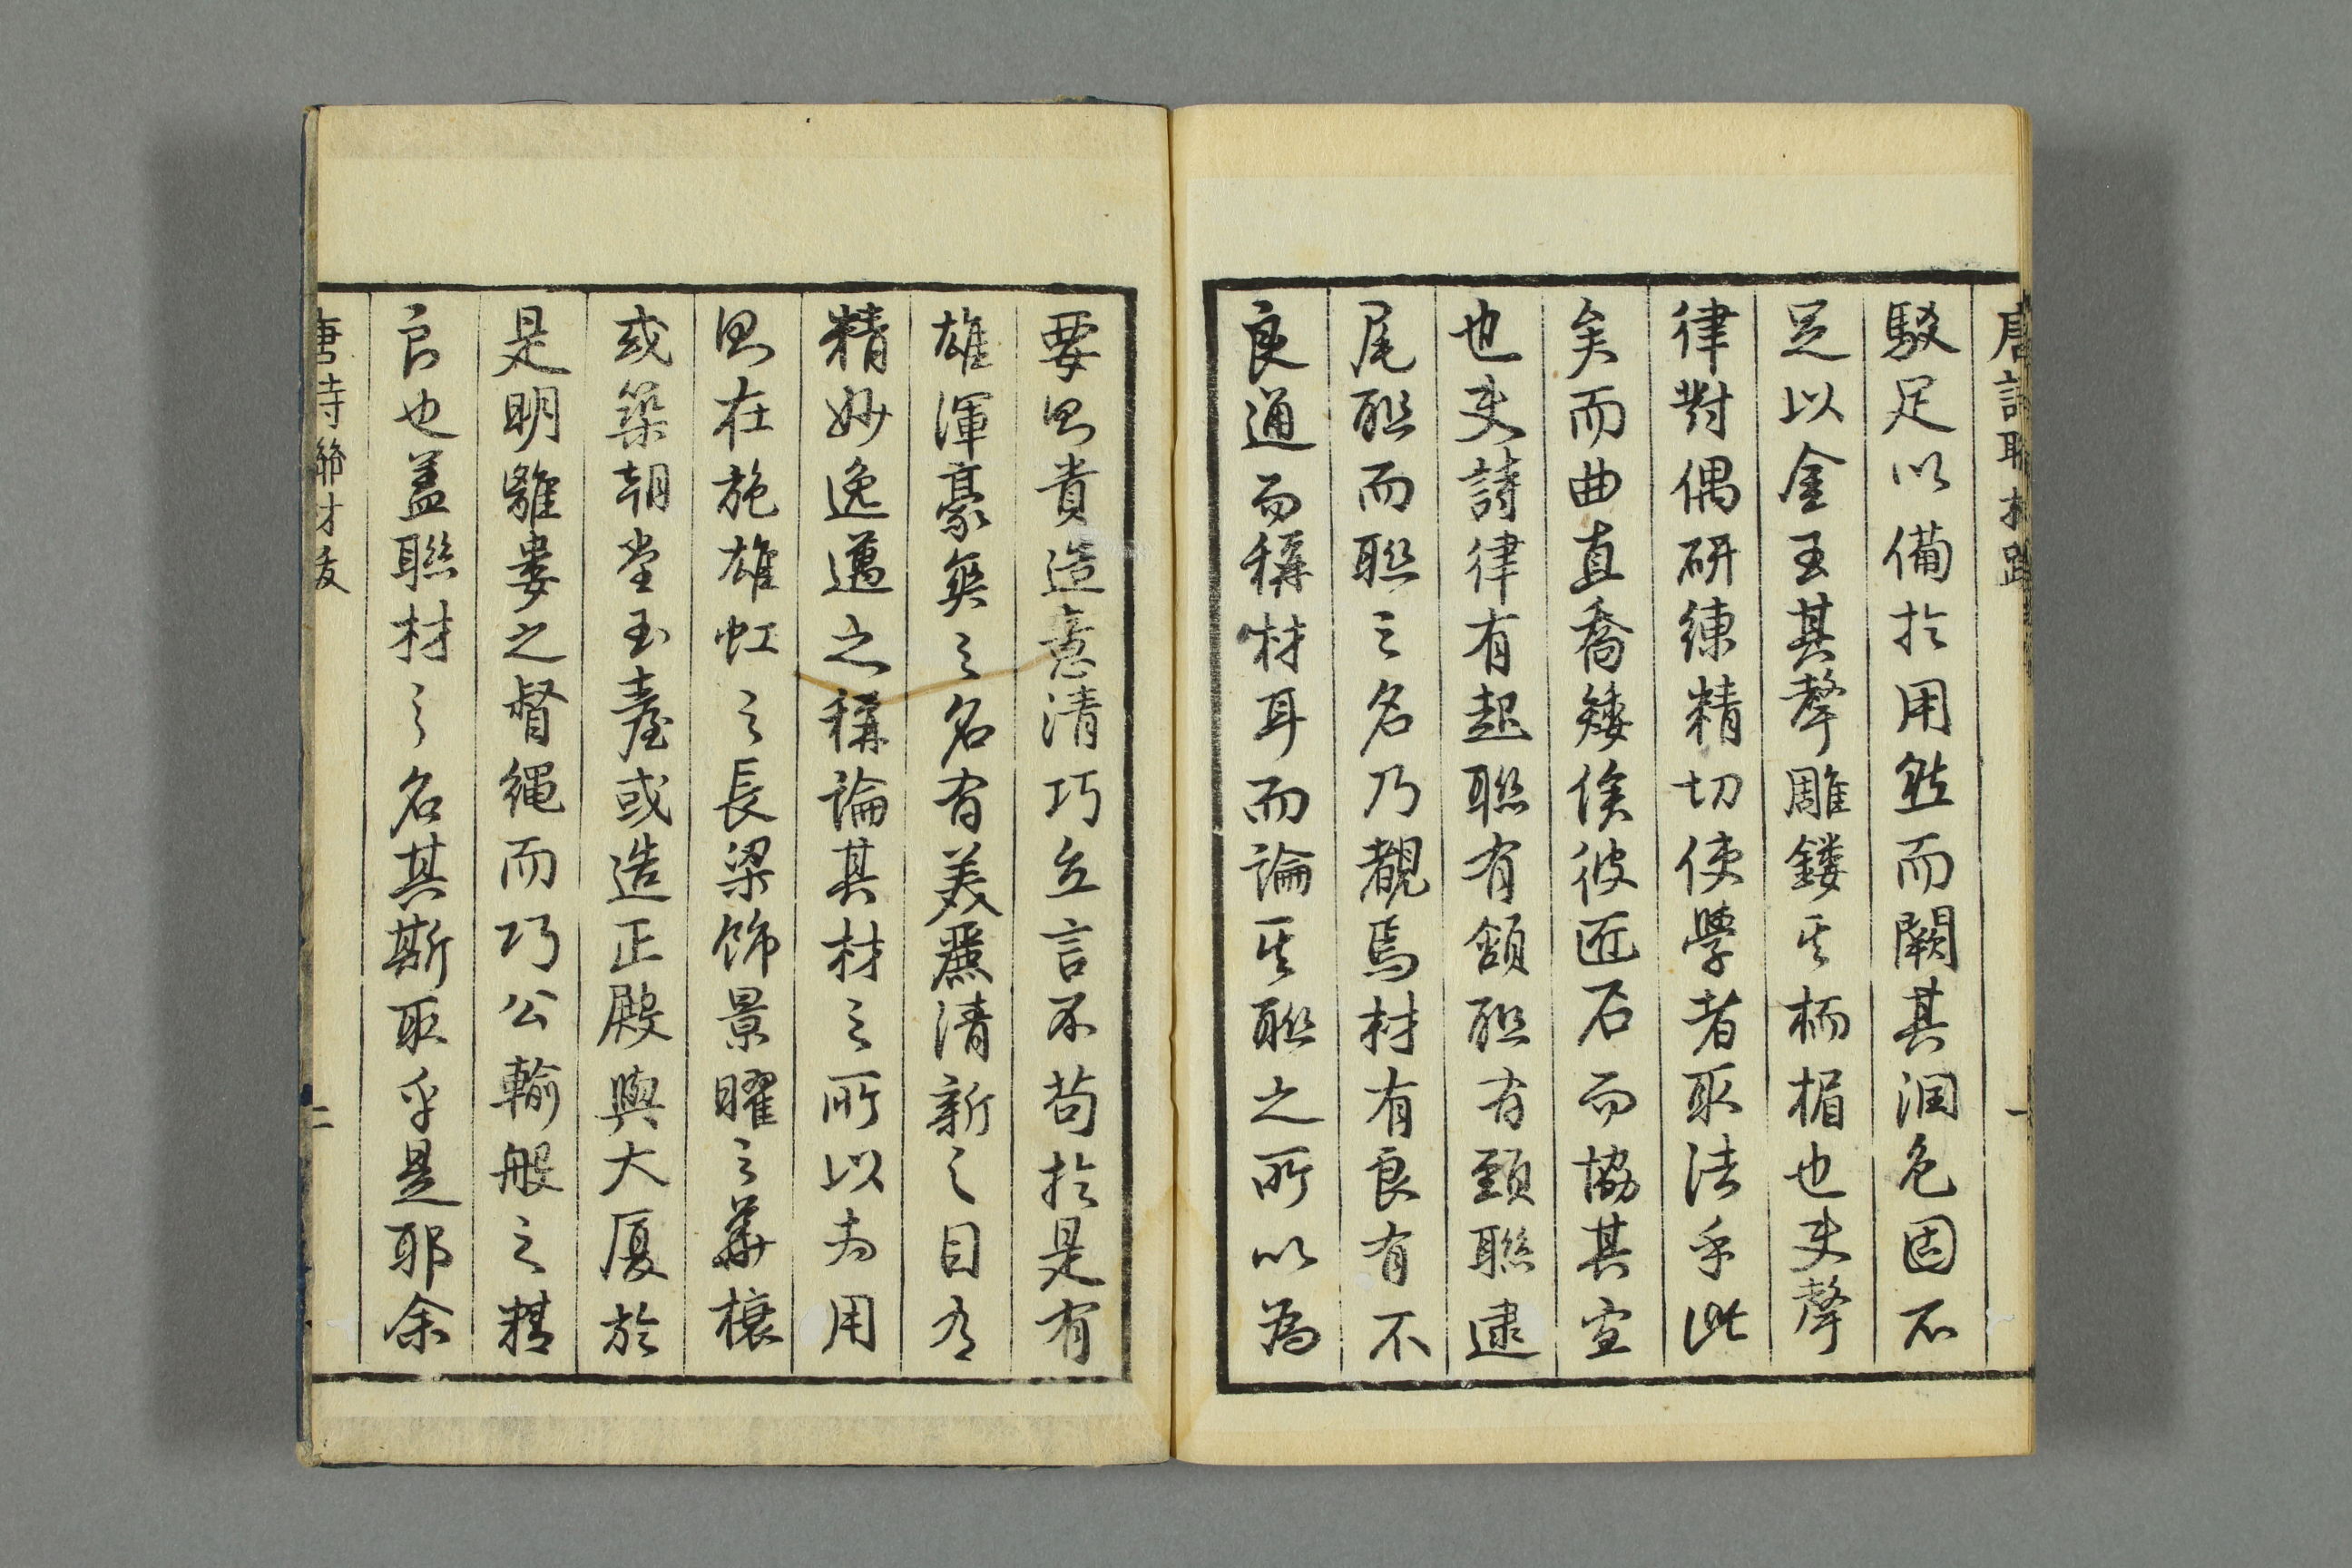 唐詩聯材跋
駁足以備於用然而闕其潤色固不
足以金玉其聲雕鏤其桷楣也夫聲
律對偶研練精切使學者取法乎此
矣而曲直喬矮俟彼匠石而協其宜
也夫詩律有起聯有頷聯有頸聯逮
尾聯而聯之名乃覩焉材有良有不
良通而稱材耳而論其聯之所以為
要則貴造意清巧立言不苟於是有
雄渾豪爽之名有美麗清新之目有
精妙逸邁之稱論其材之所以為用
則在施雄虹之長梁飾景曜之華榱
或築朝堂玉臺或造正殿與大厦於
是明離婁之督繩而巧公輸般之精
良也蓋聯材之名其斯取乎是耶余
唐詩聯材跋
二